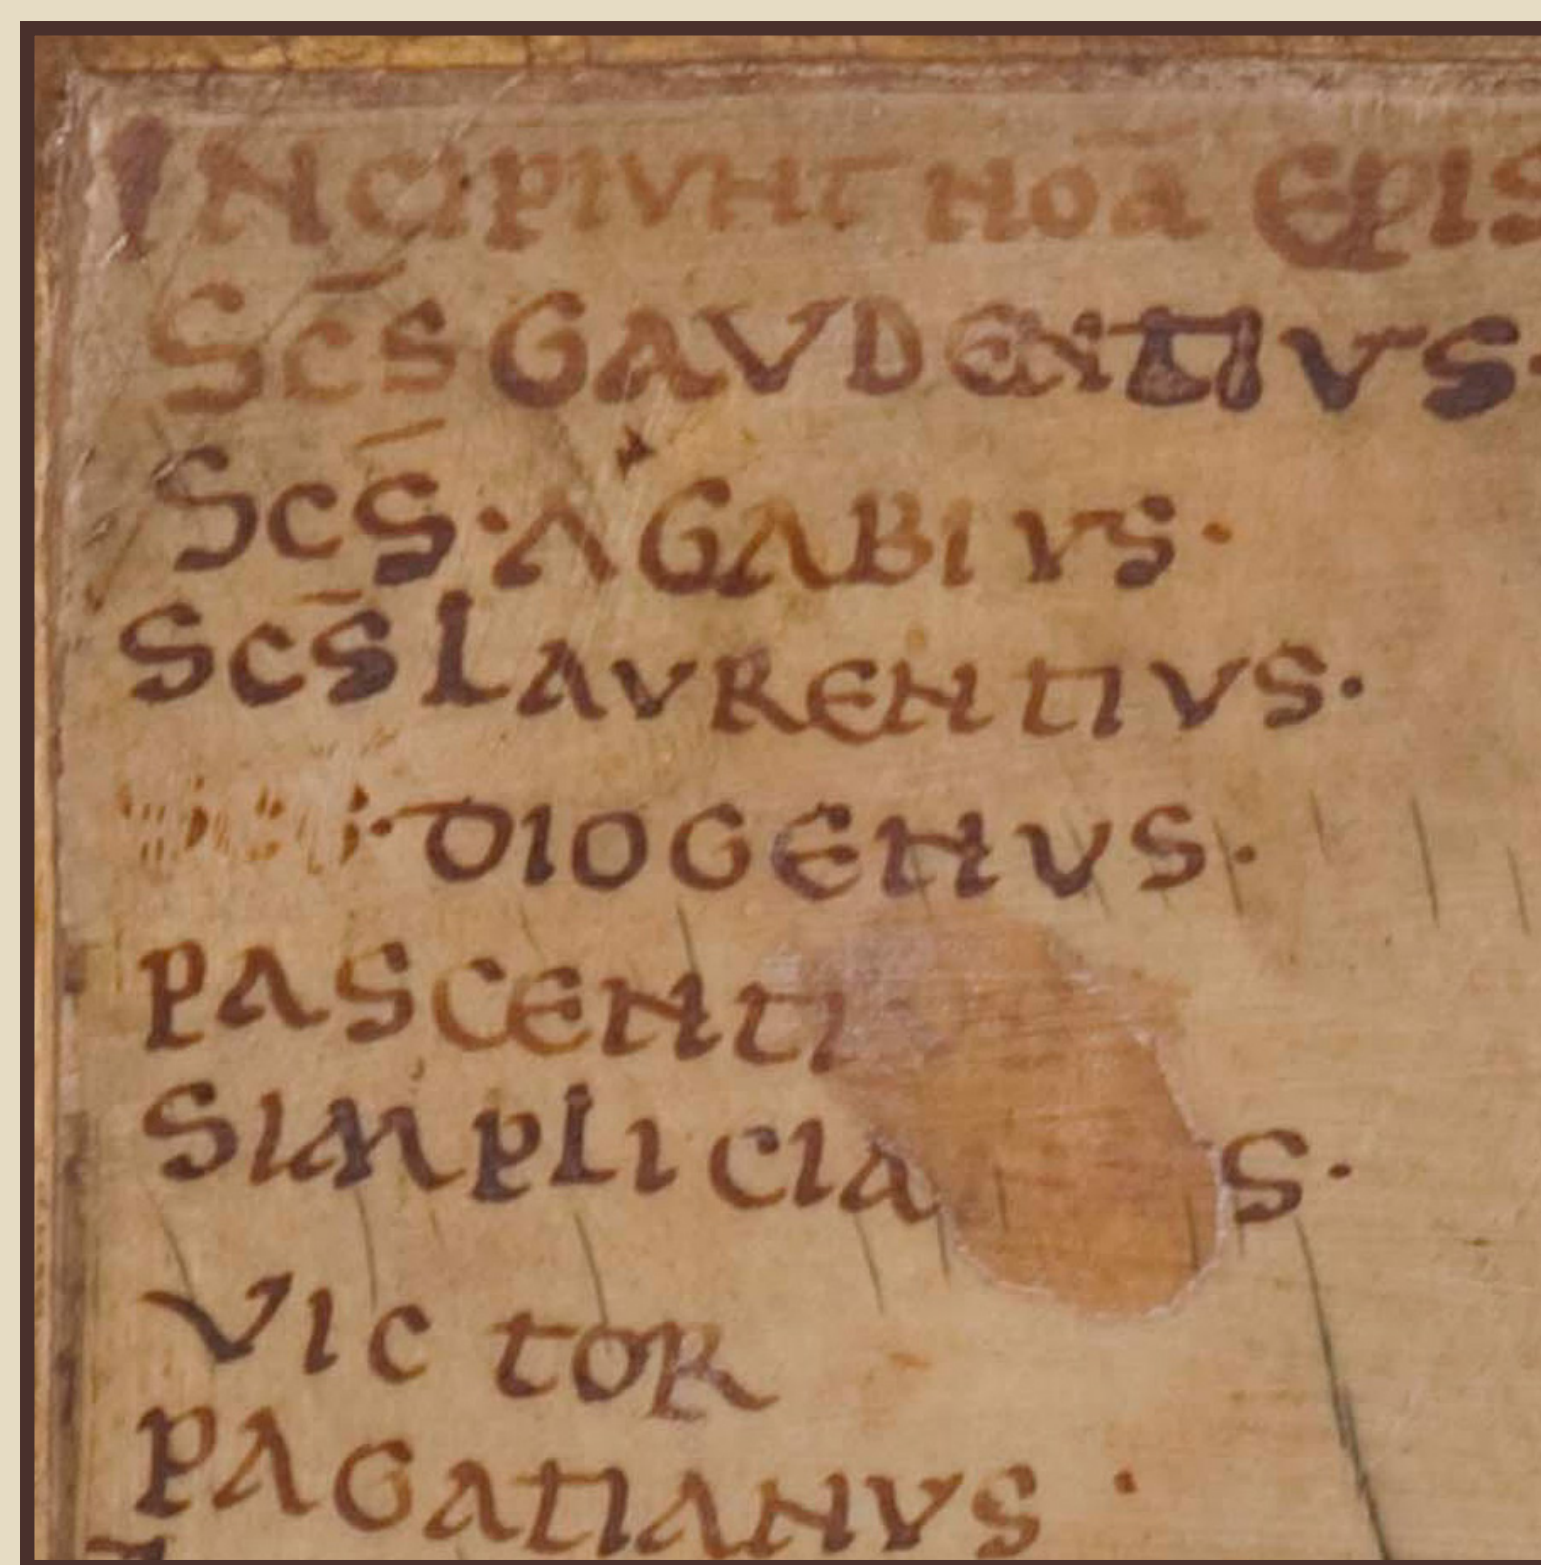 INCIPIVNT NOĀ EPIS
SCS̄ GAVDENTIVS·
SCS̄·AGABIVS·
SCS̄ LAVRENTIVS·
·DIOGENVS·
PASCENTI
SIMPLICIA S·
VICTOR
PAGATIANVS·